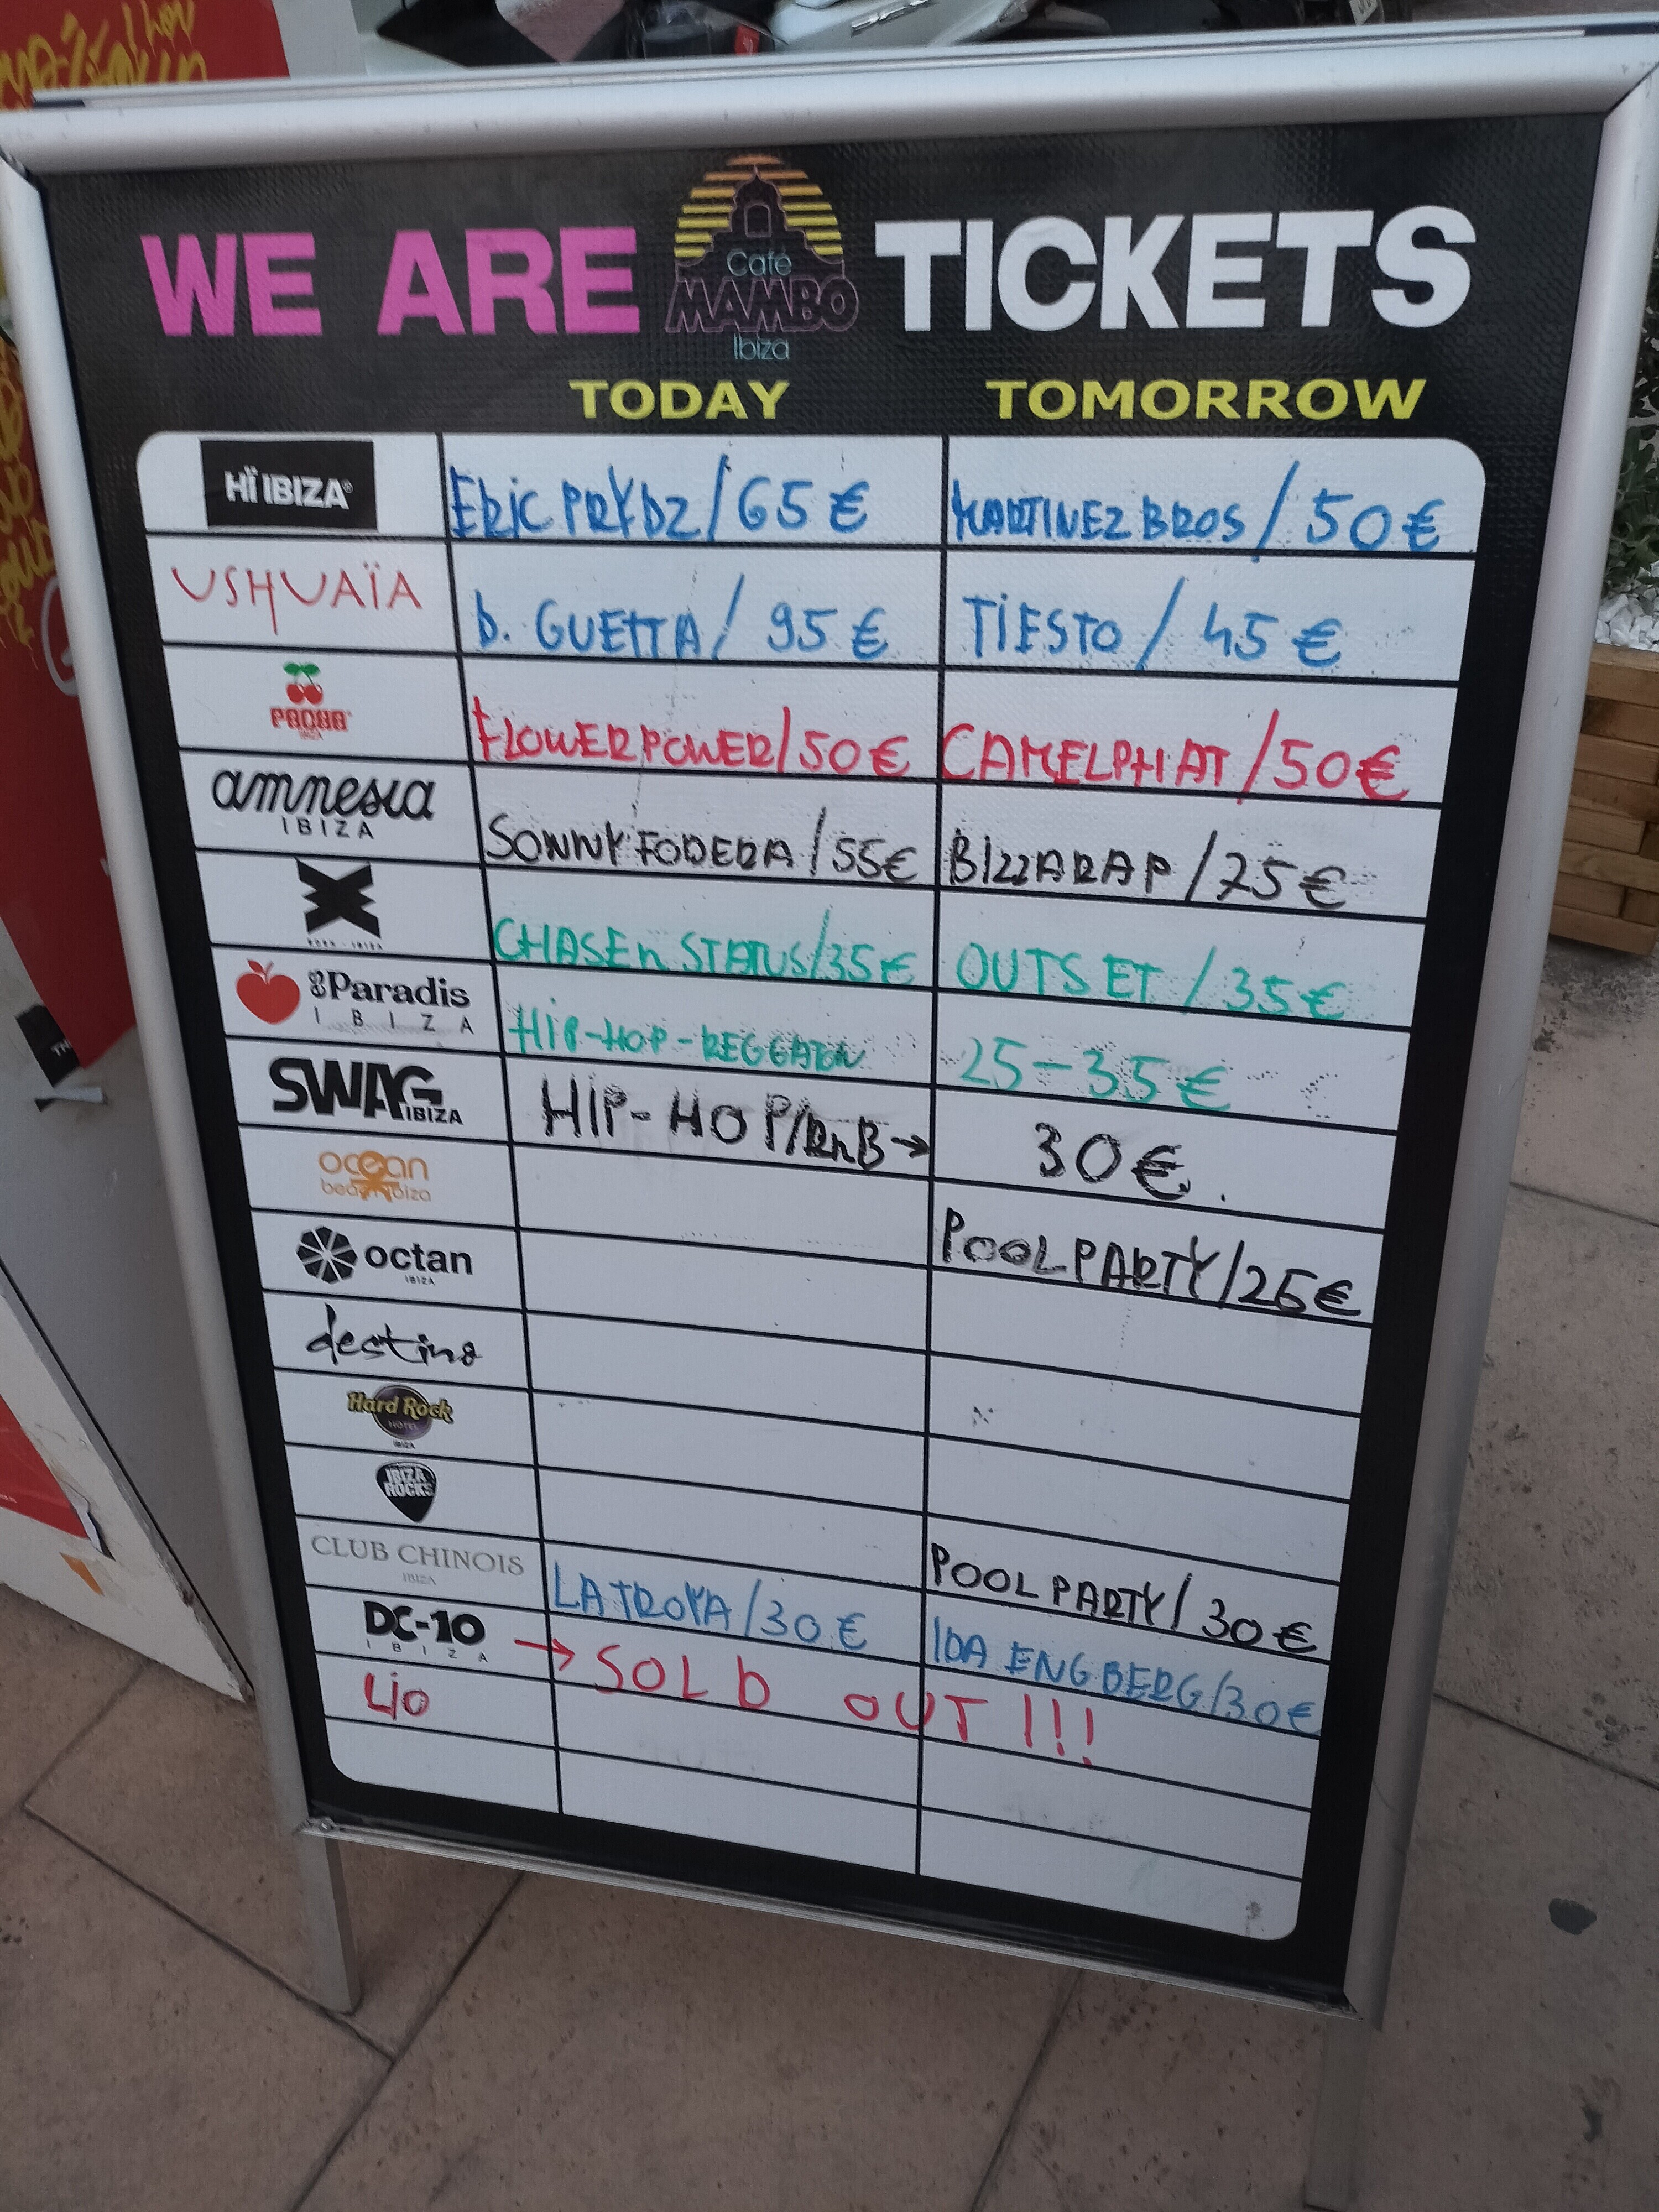 WE ARE Café MAMBO Ibiza TICKETS
TODAY TOMORROW
HÏ IBIZA ERIC PRYDZ/65€ MARTINEZ BROS/50€
USHUAÏA D. GUETTA/95€ TIESTO/45€
PACHA IBIZA FLOWER POWER/50€ CAMELPHAT/50€
amnesia IBIZA SONNY FODERA/55€ BIZZARAP/75€
CHASE n STATUS/35€ OUTSET/35€
es Paradis IBIZA HIP-HOP-REGGATON 25-35€
SWAG IBIZA HIP-HOP/RnB→ 30€.
ocean beach ibiza POOL PARTY/25€
octan IBIZA
destino
Hard Rock HOTEL IBIZA
IBIZA ROCKS POOL PARTY/30€
CLUB CHINOIS IBIZA LA TROYA/30€ IDA ENGBERG/30€
DC-10 IBIZA → SOLD OUT!!!
Lío